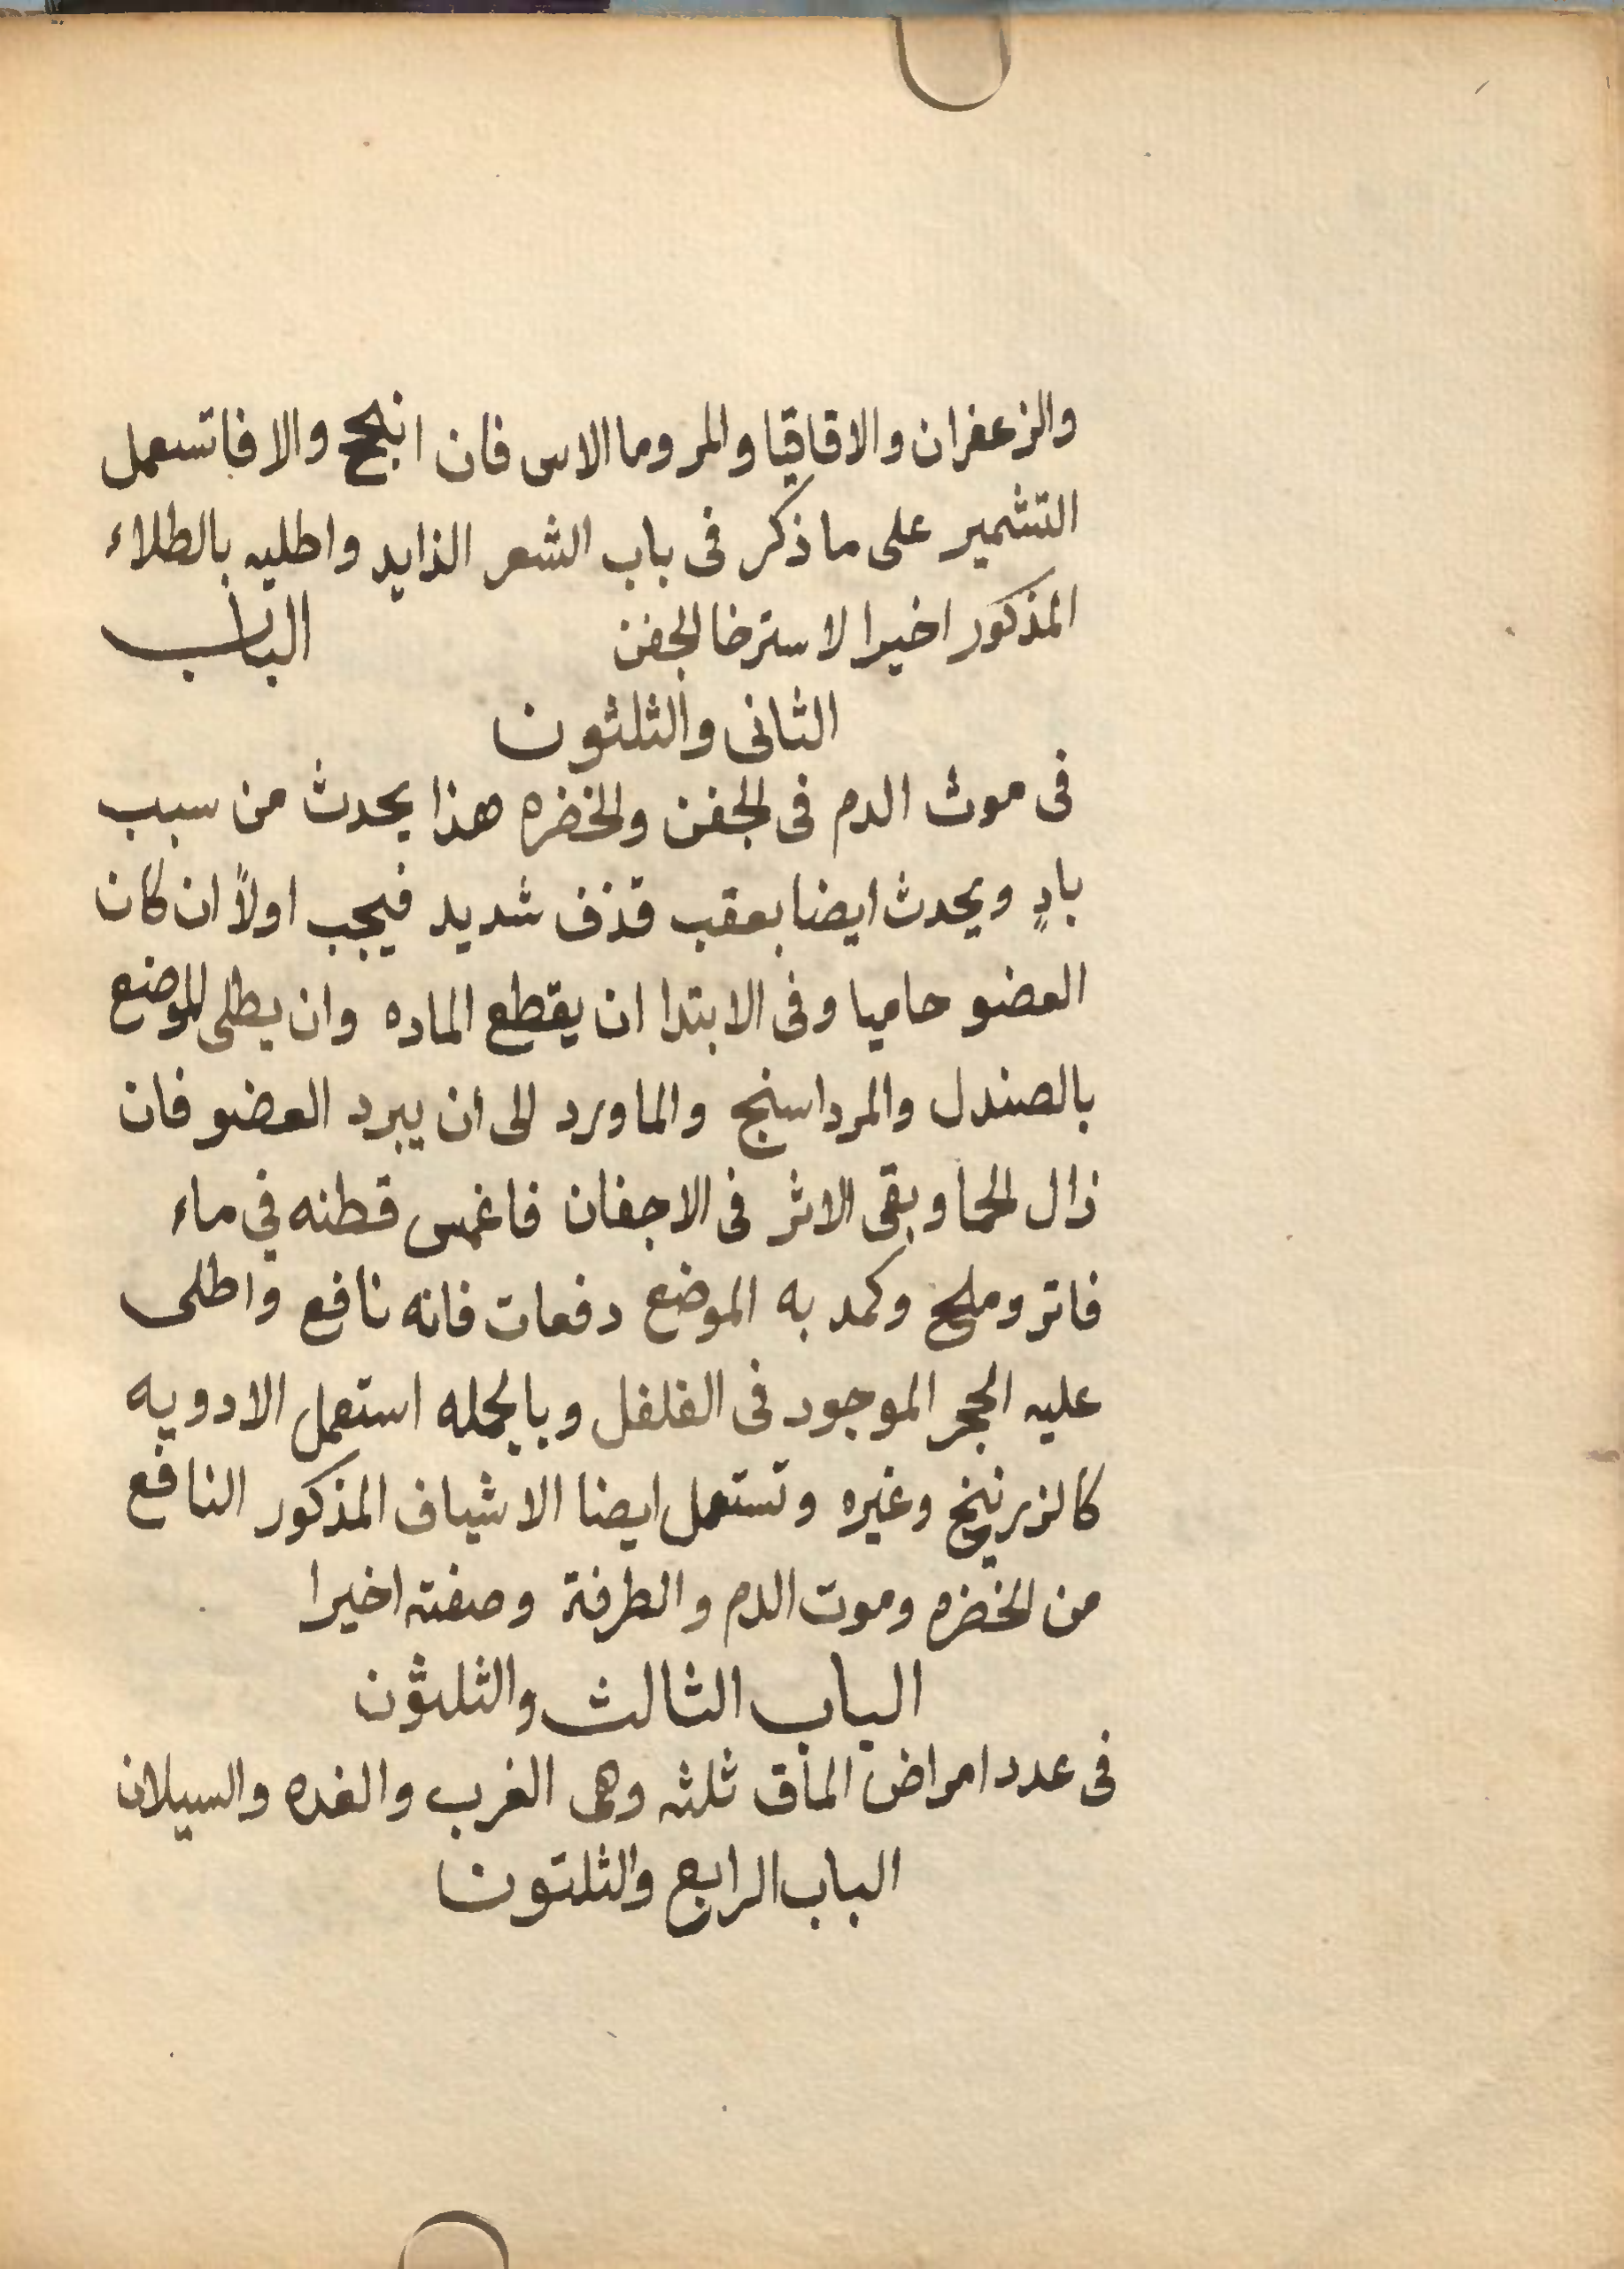 والزعفران والاقاقيا والمر وما الاس فان انجح والا فاتسعمل
التشمير على ما ذكر فى باب الشعر الزايد واطليه بالطلاء
المذكور اخيرا لاسترخا الجفن الباب
الثانى والثلثون
فى موث الدم فى الجفن والخضره هذا يحدث من سبب
بادٍ ويحدث ايضا بعقب قذف شديد فيجب اولاً ان كان
العضو حاميا وفى الابتدا ان يقطع الماده وان يطلى الموضع
بالصندل والمرداسنج والماورد الى ان يبرد العضو فان
زال الحما وبقى الاثر فى الاجفان فاغمس قطنه في ماء
فاتر وملح وكمد به الموضع دفعات فانه نافع واطلى
عليه الحجر الموجود فى الفلفل وبالجمله استعمل الادويه
كالزرنيخ وغيره وتستعمل ايضا الاشياف المذكور النافع
من الخضره وموت الدم والطرفة وصفته اخيرا
الباب الثالث والثلثون
فى عدد امراض المأق ثلثه وهى الغرب والغده والسيلان
الباب الرابع والثلتون